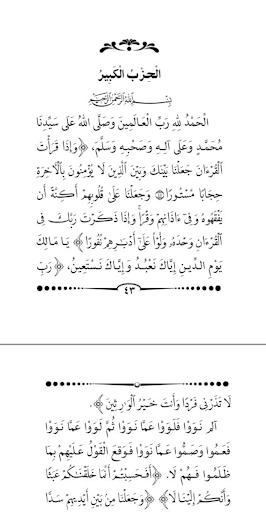 الْحِزْبُ الْكَبِيرُ
بِسْمِ اللهِ الرَّحْمٰنِ الرَّحِيمِ
الْحَمْدُ لِلّٰهِ رَبِّ الْعَالَمِينَ وَصَلَّى اللهُ عَلَى سَيِّدِنَا
مُحَمَّدٍ وَعَلَى آلِهِ وَصَحْبِهِ وَسَلَّمَ، ﴿وَإِذَا قَرَأْتَ
الْقُرْءَانَ جَعَلْنَا بَيْنَكَ وَبَيْنَ الَّذِينَ لَا يُؤْمِنُونَ بِالْآخِرَةِ
حِجَابًا مَسْتُورًا ۝ وَجَعَلْنَا عَلَى قُلُوبِهِمْ أَكِنَّةً أَن
يَفْقَهُوهُ وَفِي ءَاذَانِهِمْ وَقْرًا وَإِذَا ذَكَرْتَ رَبَّكَ فِي
الْقُرْءَانِ وَحْدَهُ وَلَّوْا عَلَى أَدْبَٰرِهِمْ نُفُورًا﴾ يَا مَالِكَ
يَوْمِ الدِّينِ إِيَّاكَ نَعْبُدُ وَإِيَّاكَ نَسْتَعِينُ، ﴿رَبِّ
٤٣
لَا تَذَرْنِي فَرْدًا وَأَنتَ خَيْرُ الْوَارِثِينَ﴾.
آلر نَوَوْا فَلَوَوْا عَمَّا نَوَوْا ثُمَّ لَوَوْا عَمَّا نَوَوْا
فَعَمُوا وَصَمُّوا عَمَّا نَوَوْا فَوَقَعَ الْقَوْلُ عَلَيْهِمْ بِمَا
ظَلَمُوا فَهُمْ لَا. ﴿أَفَحَسِبْتُمْ أَنَّمَا خَلَقْنَٰكُمْ عَبَثًا
وَأَنَّكُمْ إِلَيْنَا لَا﴾ ﴿وَجَعَلْنَا مِن بَيْنِ أَيْدِيهِمْ سَدًّا